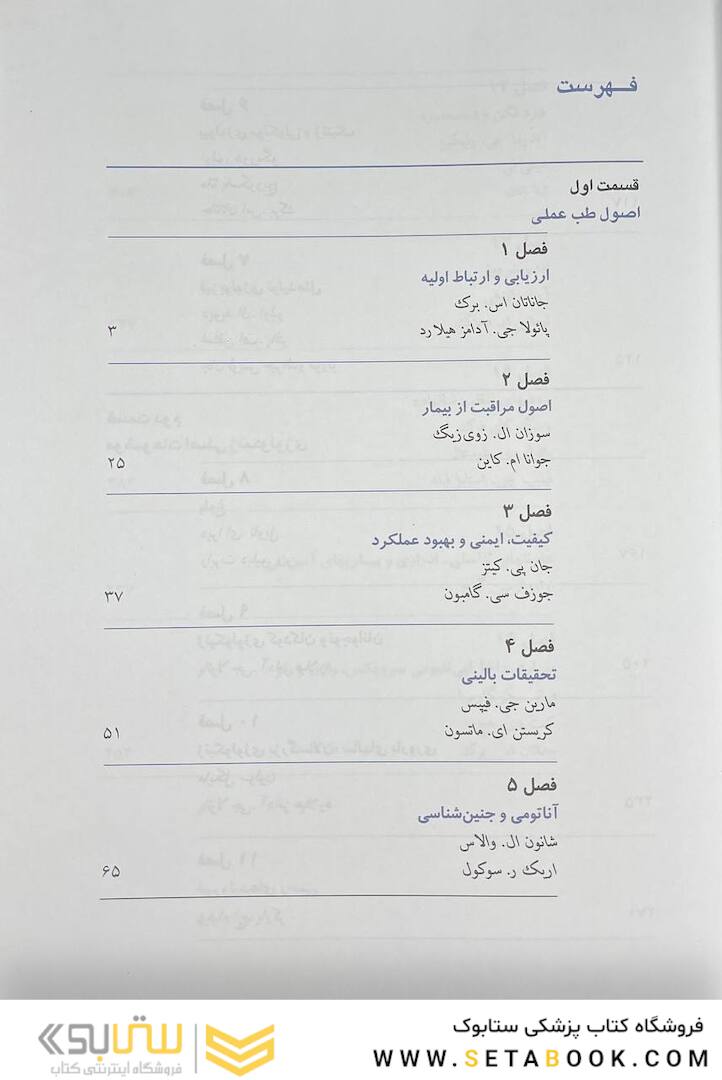 فهرست
قسمت اول
اصول طب عملی
فصل ۱
ارزیابی و ارتباط اولیه
جاناتان اس. برک
پائولا جی. آدامز هیلارد ۳
فصل ۲
اصول مراقبت از بیمار
سوزان ال. زوی‌زیگ
جوانا ام. کاین ۲۵
فصل ۳
کیفیت، ایمنی و بهبود عملکرد
جان پی. کیتز
جوزف سی. گامبون ۳۷
فصل ۴
تحقیقات بالینی
مارین جی. فیپس
کریستن ای. ماتسون ۵۱
فصل ۵
آناتومی و جنین‌شناسی
شانون ال. والاس
اریک ر. سوکول ۶۵
فروشگاه کتاب پزشکی ستابوک
WWW.SETABOOK.COM
ستابوک
فروشگاه اینترنتی کتاب